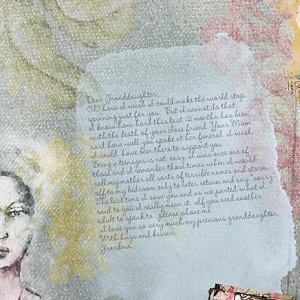 Dear Granddaughter,
Oh! how I wish I could make the world stop
spinning just for you. But I cannot do that.
I know how hard this last 12 months has been
with the death of your close friend. Your Mum
said how well you spoke at her funeral. I wish
I could have been there to support you.
Being a teenager is not easy. I was once one of
those and I remember those times when I would
call my mother all sorts of terrible names and storm
off to my bedroom only to later return and say "sorry".
The last time I saw you as we parted what I
said to you I really mean it. If you need another
adult to speak to, please phone me.
I love you so very much my precious granddaughter.
With hugs and kisses,
Grandma.